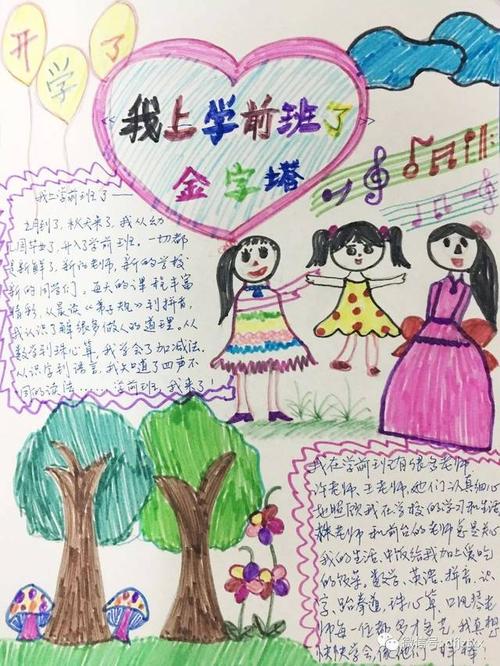 开学了
我上学前班了
金字塔
我上学前班了——
月到了,秋天来了,我从幼
园毕业了,升入了学前班,一切都
是新鲜了,新的老师,新的学校
新的同学们,每天的课程丰富
精彩,从晨读《弟子规》到拼音,
我认识了解很多做人的道理。从
数学到珠心算,我学会了加减法,
从识字到语言,我知道了四声不
同的读法……学前班,我来了!
我在学前班有很多老师
许老师、王老师,她们认真细心
地照顾我在学校的学习和生活
老师和前台的老师总是关心
我的生活,中饭给我加上爱吃
的饭菜,数学、英语、拼音、识
字、跆拳道、珠心算、口风琴老
师每一位都多才多艺,我真想
快快学会,像她们一样棒
微信号: